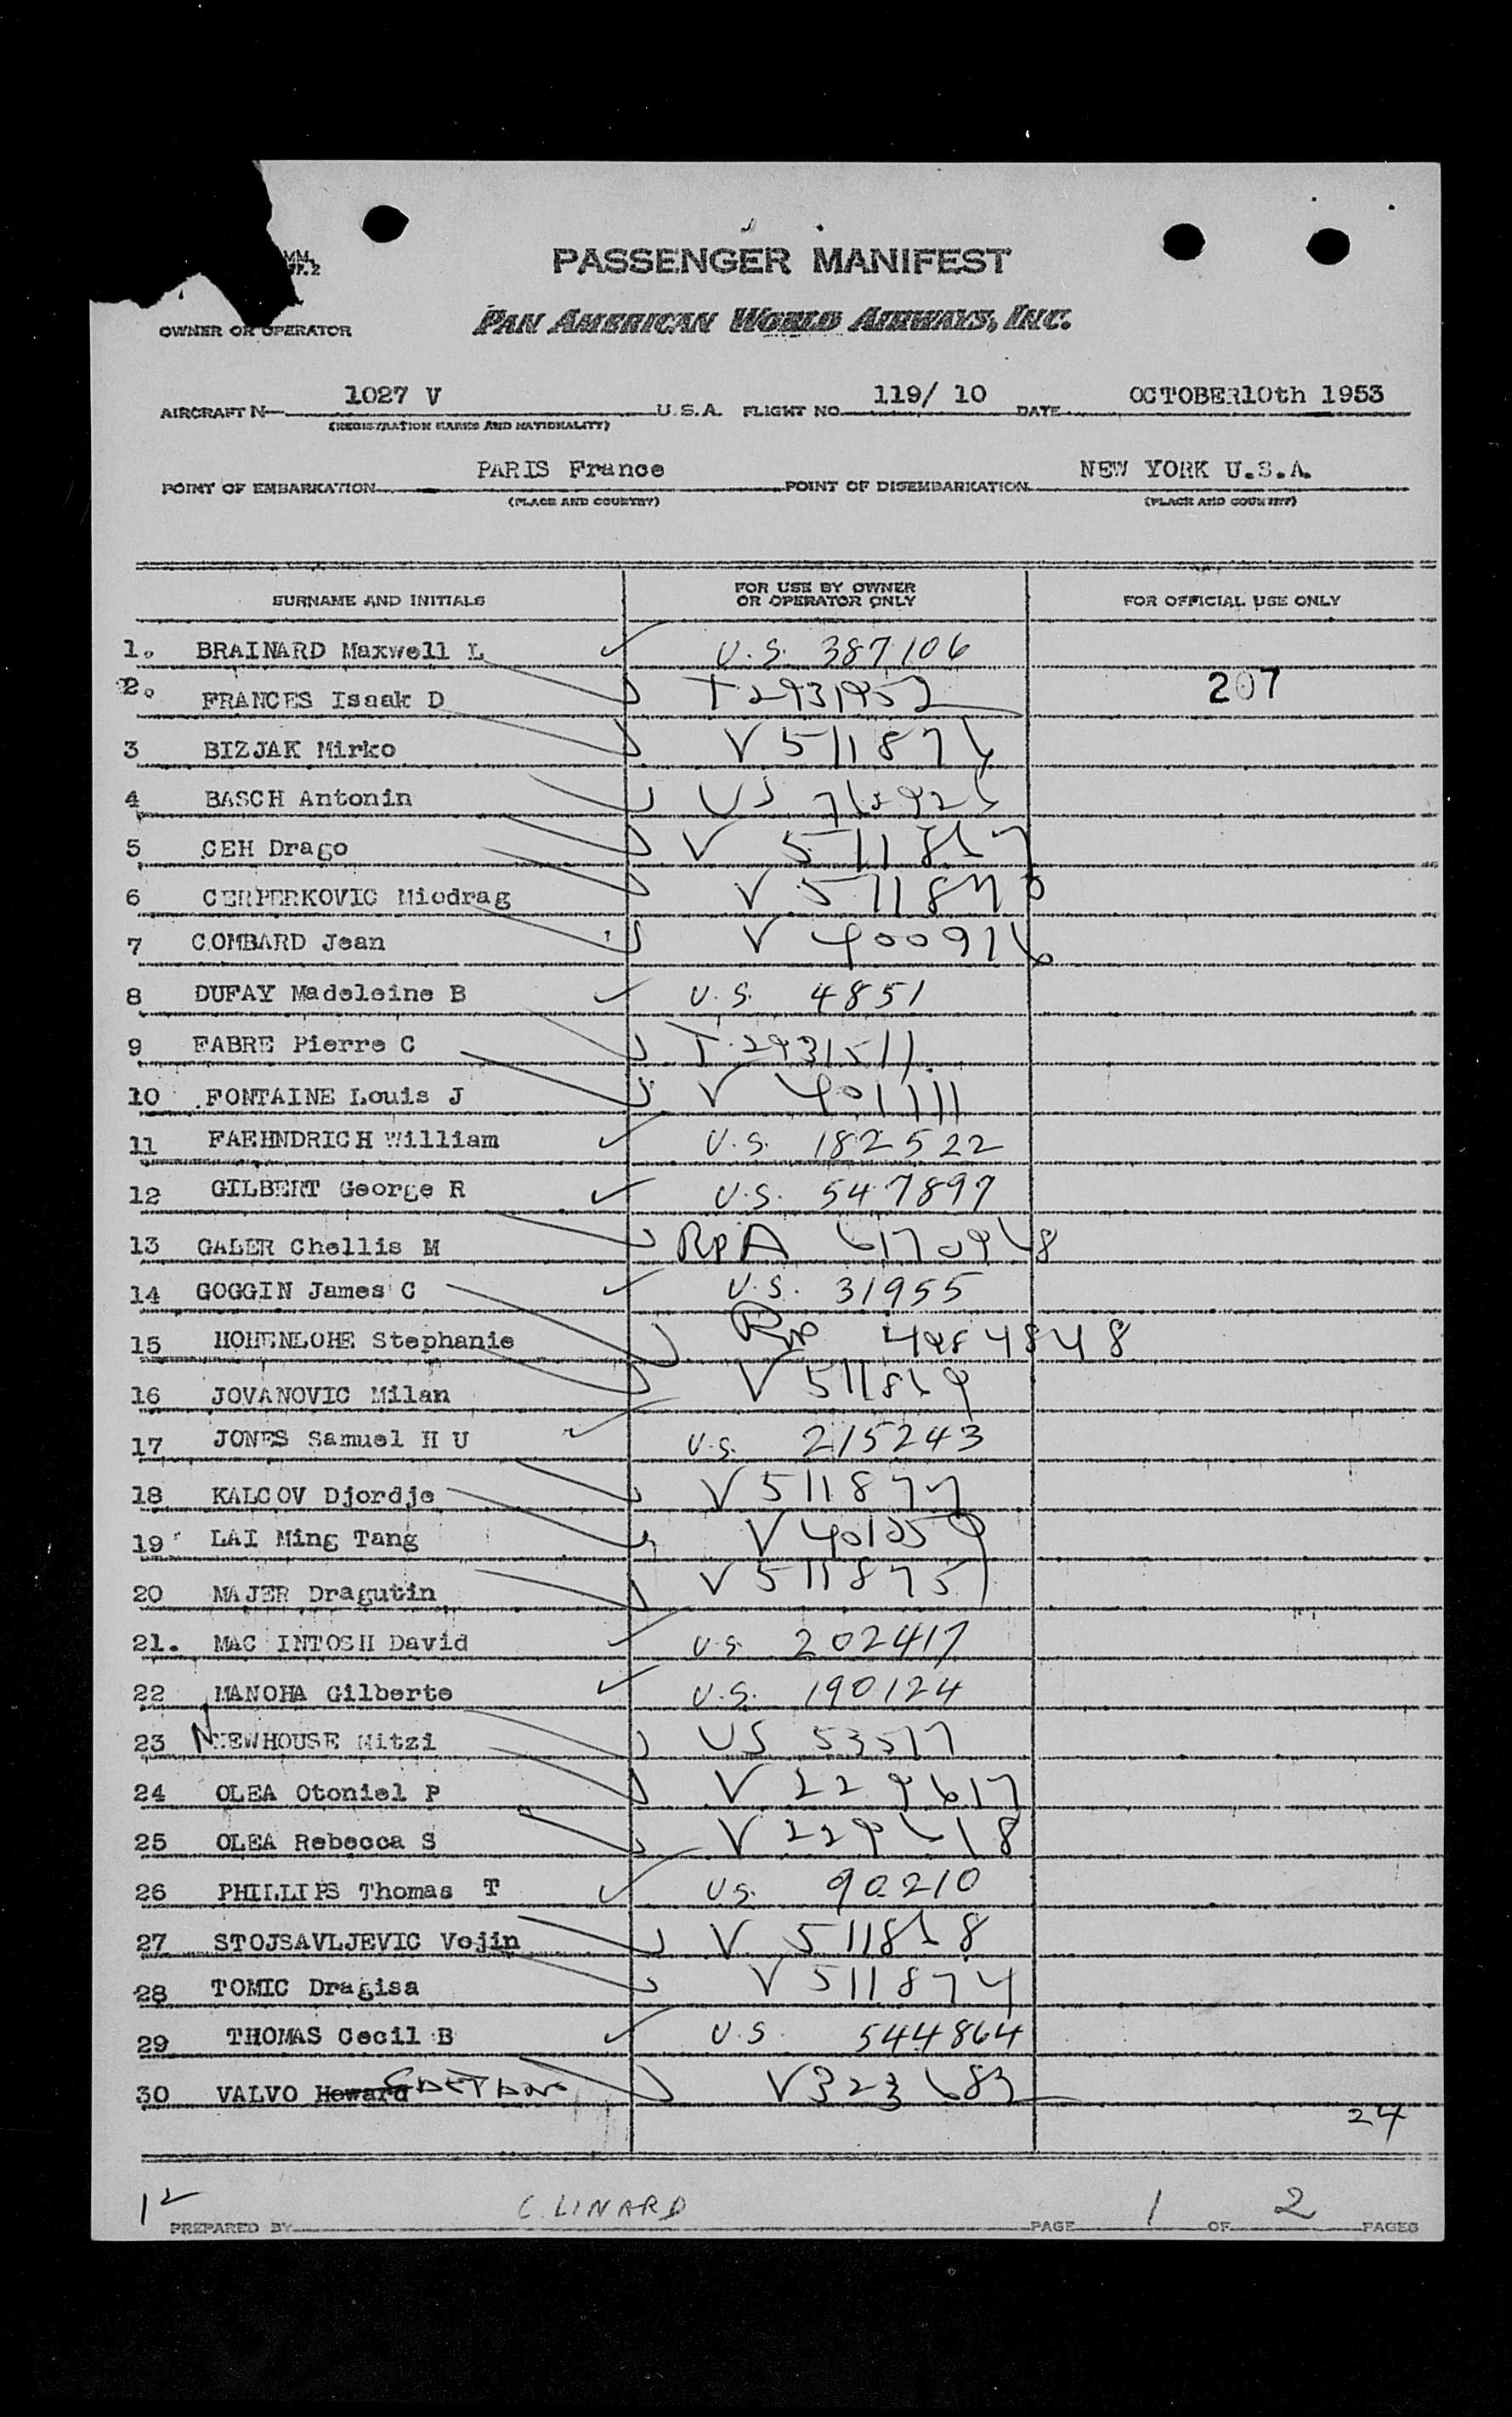 PASSENGER MANIFEST
PAN AMERICAN WORLD AIRWAYS, INC.
OWNER OR OPERATOR
AIRCRAFT N 1027 V U.S.A. FLIGHT NO. 119/ 10 DATE OCTOBER10th 1953
(REGISTRATION MARKS AND NATIONALITY)
POINT OF EMBARKATION PARIS France POINT OF DISEMBARKATION NEW YORK U.S.A.
(PLACE AND COUNTRY) (PLACE AND COUNTRY)
SURNAME AND INITIALS FOR USE BY OWNER OR OPERATOR ONLY FOR OFFICIAL USE ONLY
1. BRAINARD Maxwell L U.S. 387106
2. FRANCES Isaak D T 2931952 207
3 BIZJAK Mirko V 511876
4 BASCH Antonin US
5 CEH Drago V
6 CERPERKOVIC Miodrag V
7 COMBARD Jean V 400976
8 DUFAY Madeleine B U.S. 4851
9 FABRE Pierre C T. 2931511
10 FONTAINE Louis J V 401111
11 FAEHNDRICH William U.S. 182522
12 GILBERT George R U.S. 547897
13 GALER Chellis M RPA
14 GOGGIN James C U.S. 31955
15 HOHENLOHE Stephanie 4984848
16 JOVANOVIC Milan V 511869
17 JONES Samuel H U U.S. 215243
18 KALCOV Djordje V 511877
19 LAI Ming Tang V
20 MAJER Dragutin V 511875
21. MAC INTOSH David U.S. 202417
22 MANOHA Gilberte U.S. 190124
23 NEWHOUSE Mitzi US 53577
24 OLEA Otoniel P V 229617
25 OLEA Rebecca S V 229618
26 PHILLIPS Thomas T U.S. 90210
27 STOJSAVLJEVIC Vojin V 511868
28 TOMIC Dragisa V 511874
29 THOMAS Cecil B U.S. 544864
30 VALVO Howard V 323683
24
12
PREPARED BY C. LINARD PAGE 1 OF 2 PAGES